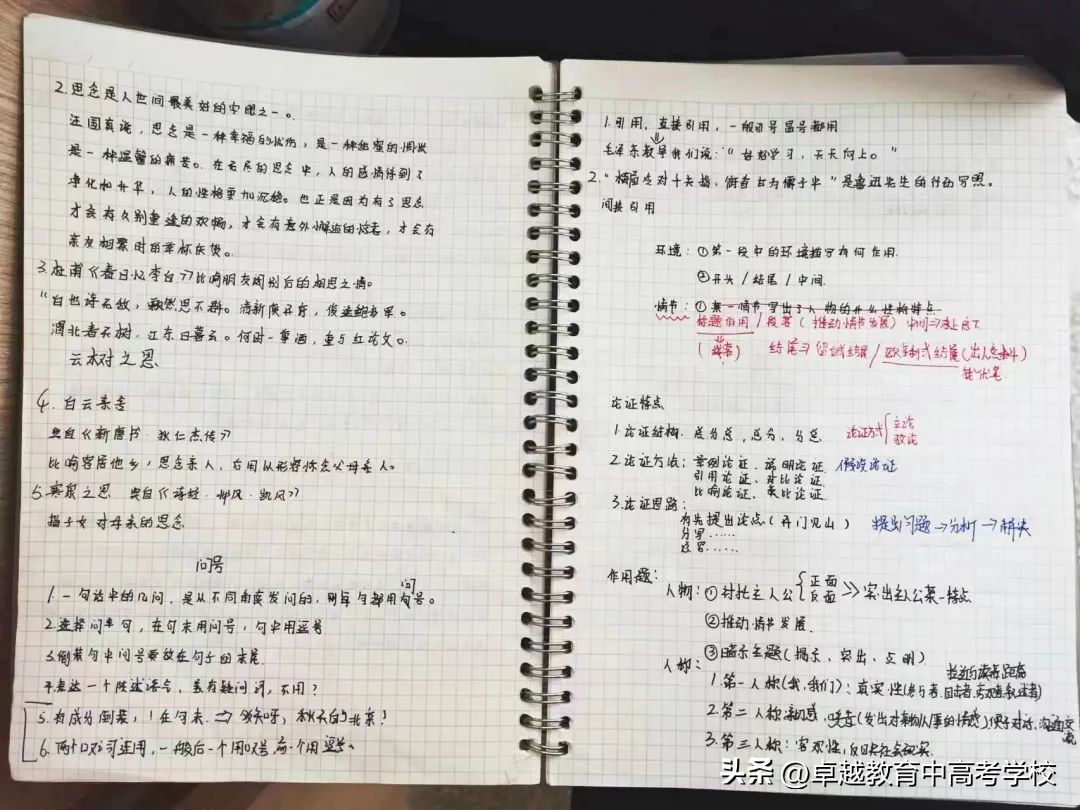 2.思念是人世间最美好的字眼之一。
汪国真说,思念是一种幸福的忧伤,是一种甜蜜的惆怅
是一种温馨的痛苦。在无尽的思念中,人的感情得到了
净化和升华,人的性格更加沉稳。也正是因为有了思念
才会有久别重逢的欢畅,才会有意外邂逅的惊喜,才会有
亲友相聚时的举杯庆贺。
3.杜甫《春日忆李白》比喻朋友阔别后的相思之情。
"白也诗无敌,飘然思不群。清新庾开府,俊逸鲍参军。
渭北春天树,江东日暮云。何时一尊酒,重与细论文。
云树之思
4.白云亲舍
典自《新唐书·狄仁杰传》
比喻客居他乡,思念亲人,后用以形容怀念父母亲人。
5.寒泉之思 典自《诗经·邶风·凯风》
指子女对母亲的思念
问号
1.一句话中的几问,是从不同角度发问的,则每句都用问号。
2.选择问单句,在句末用问号,句中用逗号
3.倒装句中问号要放在句子的末尾
4.表达一个陈述语气,虽有疑问词,不用?
5.有成为倒装,!在句末
6.两个叹号连用,一般后一个用叹号,前一个用逗号
1.引用,直接引用,一般引号冒号都用
毛泽东教导我们说:"好好学习,天天向上。"
2."横眉冷对千夫指,俯首甘为孺子牛"是鲁迅先生的行动写照。
间接引用
环境:①第一段中的环境描写有何作用
②开头/结尾/中间
情节:①某一情节写出了人物的什么性格特点
标题作用/段落(推动情节发展)中间⇒承上启下
(线索) 结尾⇒留白式结尾/欧亨利式结尾(出人意料)
找伏笔
论证特点
1.论证结构.总分总,总分,分总 论证方式{立论
驳论
2.论证方法:举例论证、说明论证 假设论证
引用论证、对比论证
比喻论证、类比论证
3.论证思路:
首先提出论点(开门见山) 提出问题→分析→解决
分写……
总写……
作用题:
人物:①衬托主人公{正面
反面 >>突出主人公某一特点
②推动情节发展
③暗示主题(揭示、突出、点明)
人称: 拉近与读者距离
1.第一人称(我,我们):真实性(参与者、目击者、旁观者、叙述者)
2.第二人称:亲切感,呼告(发出对某物人事的情感)便于对话,沟通交流
3.第三人称:客观性,反映社会现实.
头条 @卓越教育中高考学校